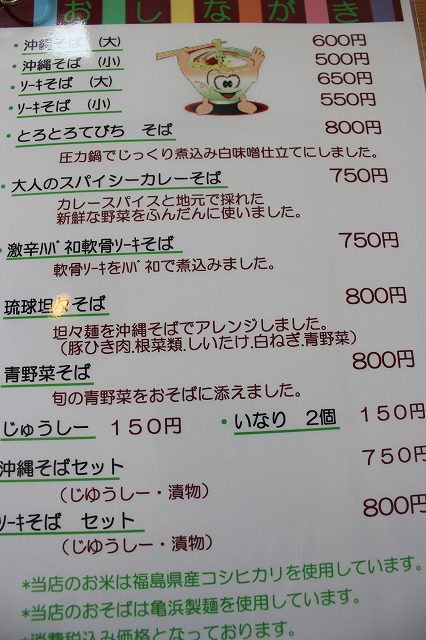 おしながき
・沖縄そば (大) 600円
・沖縄そば (小) 500円
・ソーキそば (大) 650円
・ソーキそば (小) 550円
・とろとろてびち そば 800円
圧力鍋でじっくり煮込み白味噌仕立てにしました。
・大人のスパイシーカレーそば 750円
カレースパイスと地元で採れた
新鮮な野菜をふんだんに使いました。
・激辛ハバネロ軟骨ソーキそば 750円
軟骨ソーキをハバネロで煮込みました。
琉球坦々そば 800円
坦々麺を沖縄そばでアレンジしました。
(豚ひき肉.根菜類.しいたけ.白ねぎ.青野菜)
青野菜そば 800円
旬の青野菜をおそばに添えました。
じゅうしー 150円 ・いなり 2個 150円
沖縄そばセット 750円
(じゆうしー・漬物)
ソーキそば セット 800円
(じゆうしー・漬物)
*当店のお米は福島県産コシヒカリを使用しています。
*当店のおそばは亀浜製麺を使用しています。
*消費税込み価格となっております。